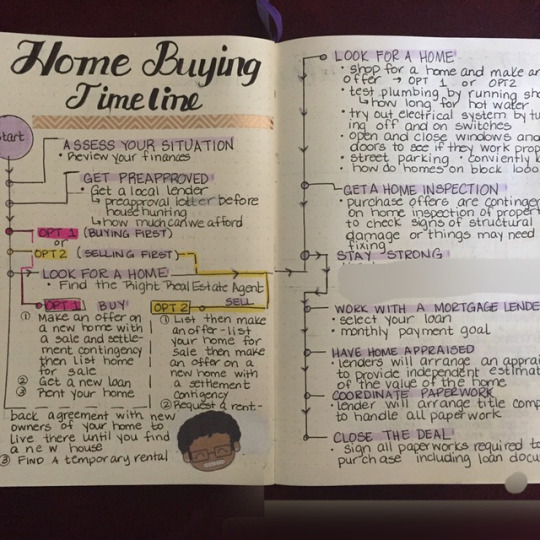 Home Buying
Timeline
Start
ASSESS YOUR SITUATION
• Review your finances
GET PREAPPROVED
• Get a local lender
↳ preapproval letter before
house hunting
↳ how much can we afford
OPT 1 (BUYING FIRST)
or
OPT 2 (SELLING FIRST)
LOOK FOR A HOME
• Find the Right Real Estate Agent
OPT 1 BUY
① Make an offer on
a new home with
a sale and settle-
ment contingency
then list home
for sale
② Get a new loan
③ Rent your home
OPT 2 SELL
① List then make
an offer - list
your home for
sale then make
an offer on a
new home with
a settlement
contigency
② Request a rent-
back agreement with new
owners of your home to
live there until you find
a new house
③ FIND A temporary rental
LOOK FOR A HOME
• shop for a home and make an
offer → OPT 1 or OPT2
• test plumbing by running
↳ how long for hot water
• try out electrical system by
ing off and on switches
• open and close windows and
doors to see if they work
• street parking • conviently
• how do homes on block
GET A HOME INSPECTION
• purchase offers are
on home inspection of
to check signs of structural
damage or things may need
fixing
STAY STRONG
WORK WITH A MORTGAGE
• select your loan
• monthly payment goal
HAVE HOME APPRAISED
• lenders will arrange an
to provide independent
of the value of the home
COORDINATE PAPERWORK
• lender will arrange title
to handle all paperwork
CLOSE THE DEAL
• sign all paperworks required
purchase including loan